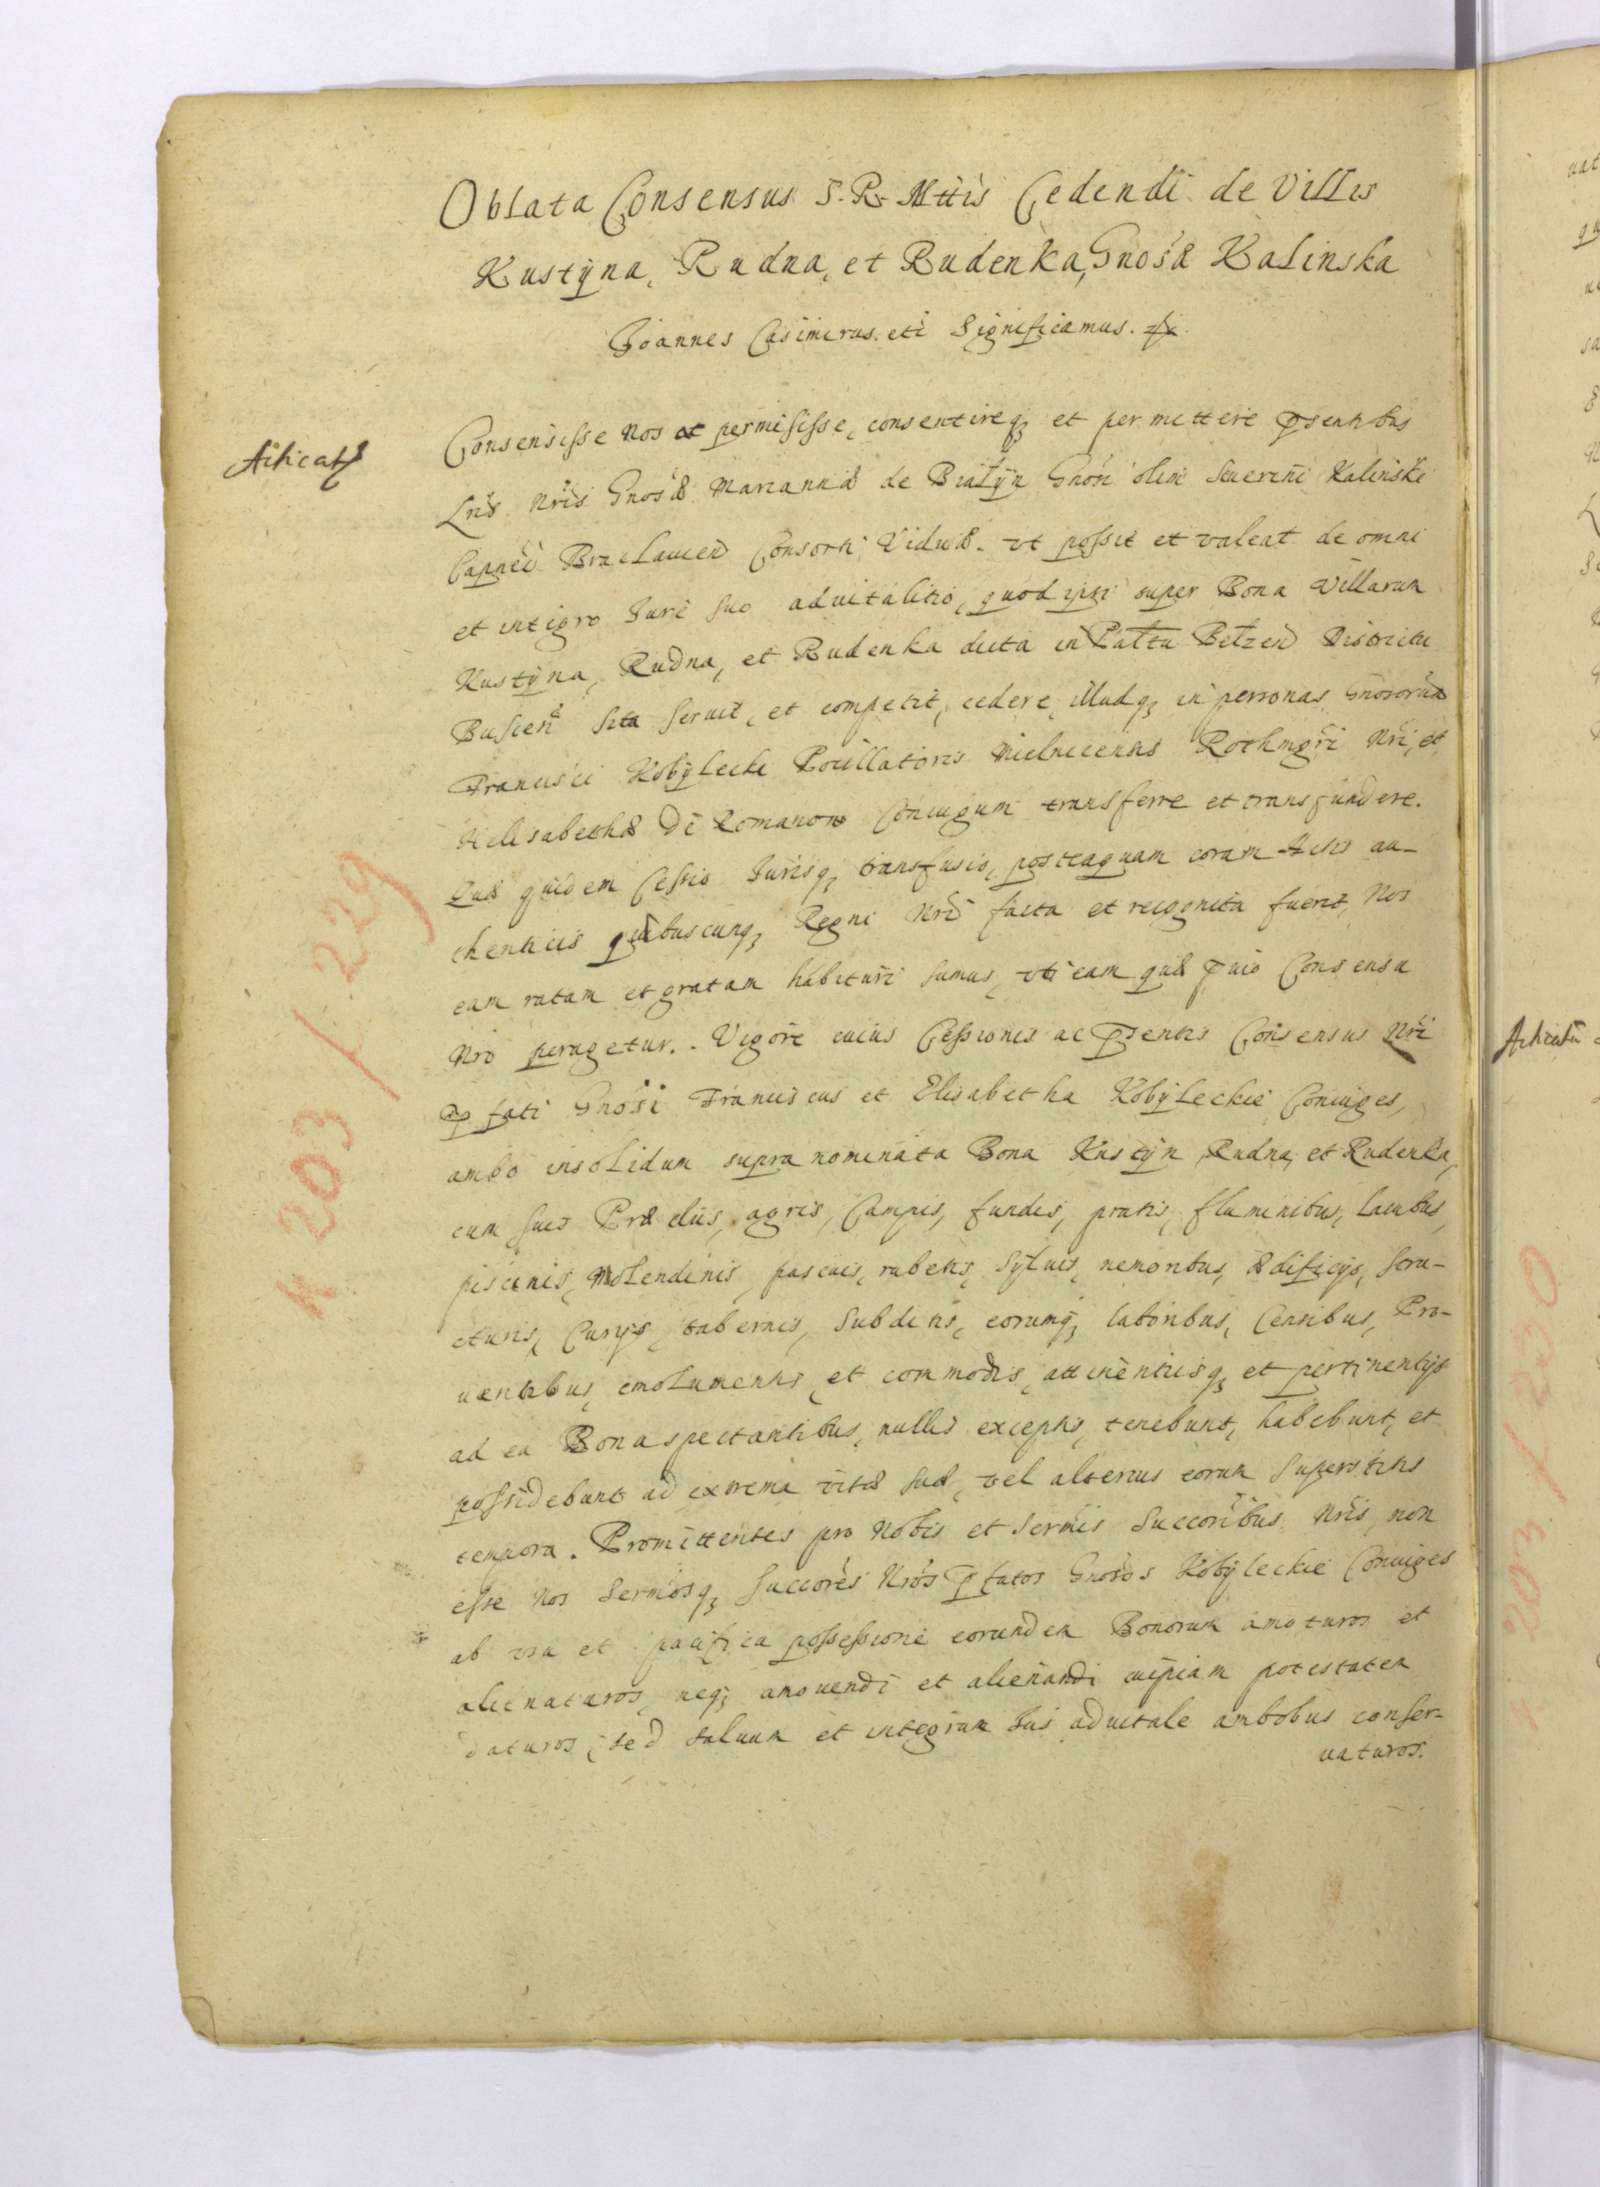 Oblata Consensus S. R. Mttis Cedendi de Villis
Kustÿna, Rudna, et Rudenka, Gnosæ Kalinska
Joannes Casimirus. etc Significamus.
Acticat
Consensisse Nos et permisisse, consentireq; et permittere pñtibus
Lris Nris Gnosæ Mariannæ de Białÿn Gnosi olim Seuerini Kalinski
Capnei Braclauien Consorti Viduæ. vt possit et valeat de omni
et integro Jure suo aduitalitio, quod ipsi super Bona Villarum
Kustÿna, Rudna, et Rudenka dicta in Pallatu Belzen Districtu
Buscen sita seruit, et competit, cedere, illudq; in personas Gnosorum
Francisci Kobÿlecki Pocillatoris Mielnicensis Rothmgri Nri, et
Helisabethæ de Romanow Coniugum transferre et transfundere.
Quæ quidem Cessio Jurisq; transfusio, posteaquam coram Actis au-
thenticis quibuscunq; Regni Nri facta et recognita fuerit, Nos
eam ratam et gratam habituri sumus, vti eam quæ puio Consensu
Nro peragetur. Vigore cuius Cessionis ac pñsentis Consensus Nri
pfati Gnosi Franciscus et Elisabetha Kobÿleckie Coniuges,
ambo insolidum supra nominata Bona Kustÿn, Rudna, et Rudenka,
cum suis Prædiis, agris, Campis, fundis, pratis, fluminibus, lacubus,
piscinis, Molendinis, pascuis, rubetis, Sÿluis, nemoribus, ædificijs, stru-
cturis, Curijs, tabernis, Subditis, eorumq; laboribus, Censibus, Pro-
uentibus, emolumentis, et commodis, attinentiisq; et pertinentijs
ad ea Bona spectantibus, nullis exceptis, tenebunt, habebunt, et
possidebunt ad extrema vitæ suæ, vel alterius eorum Superstitis
tempora. Promittentes pro Nobis et Sermis Succoribus Nris, non
esse Nos Sermosq; Succores Nros pfatos Gnosos Kobÿleckie Coniuges
ab vsu et pacifica possessione eorundem Bonorum amoturos et
alienaturos, neq; amouendi et alienandi cuipiam potestatem
daturos, sed saluum et integrum Jus aduitale ambobus conser-
uaturos.
K 203 / 229
Acticatu
K 203 / 230